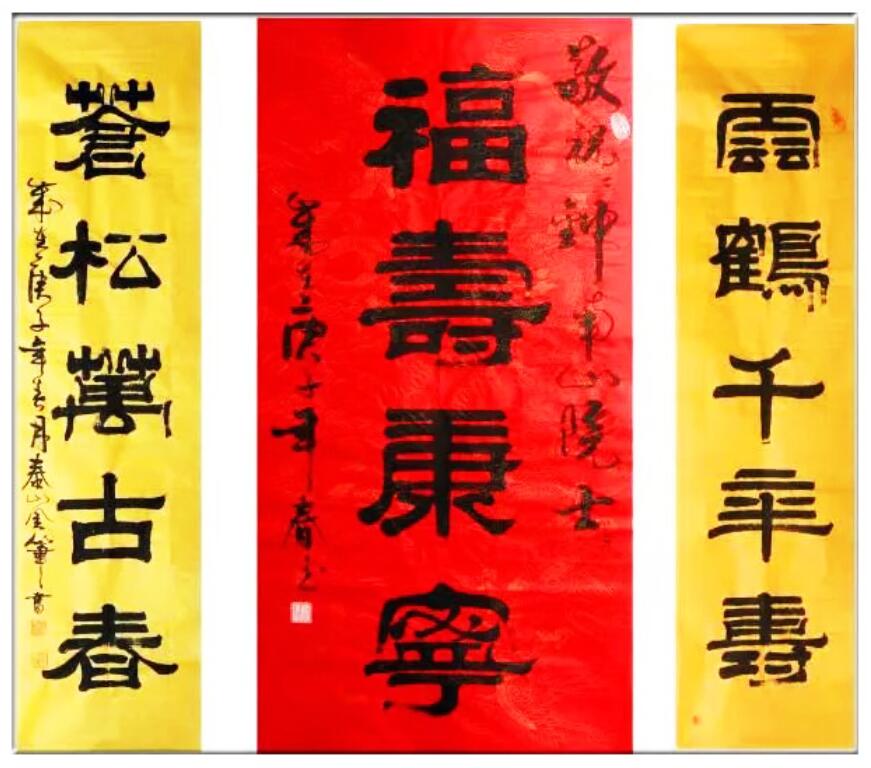 雲鶴千年壽
敬祝鈡南山院士
福壽康寧
歲在庚子年春
蒼松萬古春
歲在庚子年春月泰山金筆書